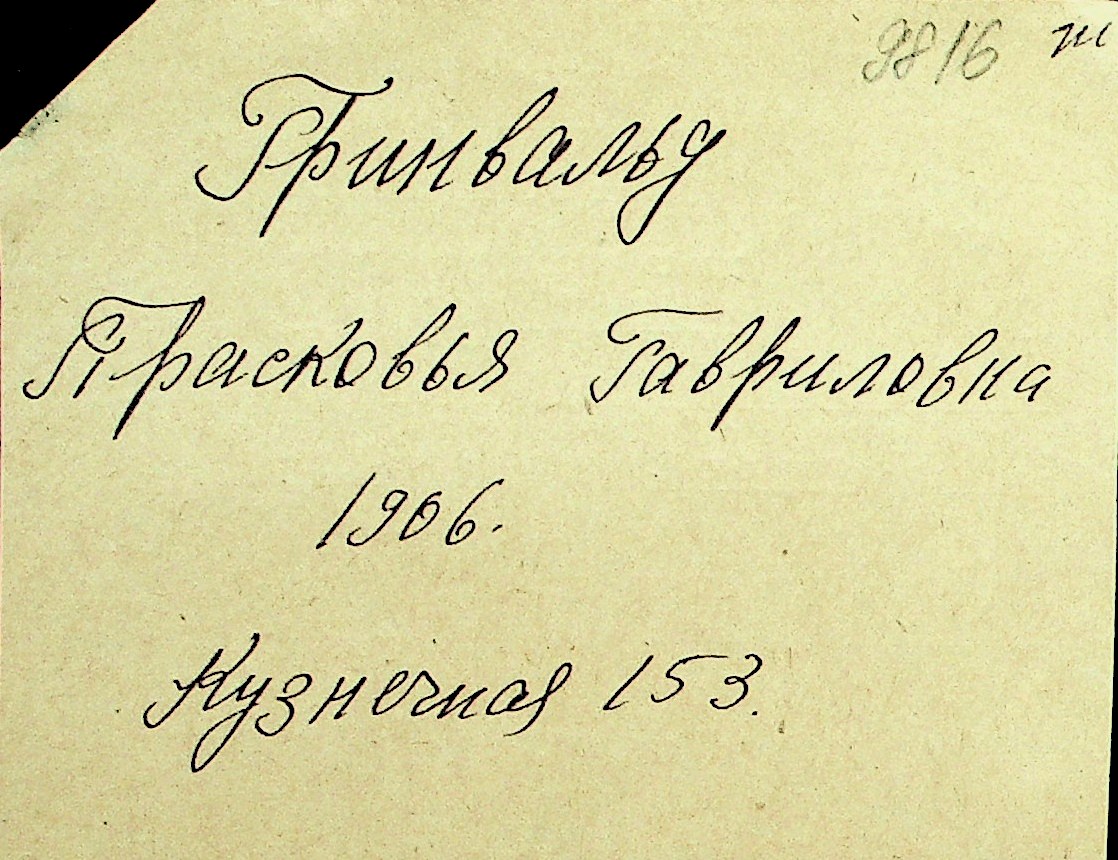 9816 т
Гринвальд
Прасковья Гавриловна
1906.
Кузнечная 153.